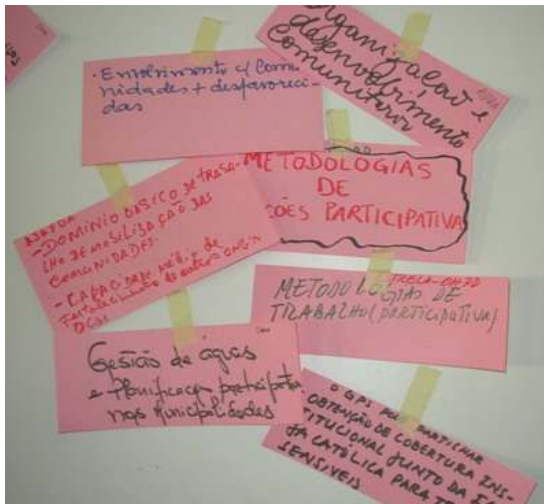 Organização e
desenvolvimento
comunitario
. Envolvimento c/ Comu
nidades + desfavoreci-
das
METODOLOGIAS
DE
ÇÕES PARTICIPATIVA
- DOMINIO BASICO DE TRABA-
LHO DE MOBILIZAÇÃO DAS
COMUNIDADES.
- CAPACIDADE média de
Fortalecimento de outras ONGs
METODOLOGIAS DE
TRABALHO (PARTICIPATIVA)
Gestão de águas
e Planificaçao participativa
nas Municipalidades
O GPS POR PARTILHAR
OBTENÇÃO DE COBERTURA INS-
TITUCIONAL JUNTO DA
CATÓLICA PARA
SENSIVEIS